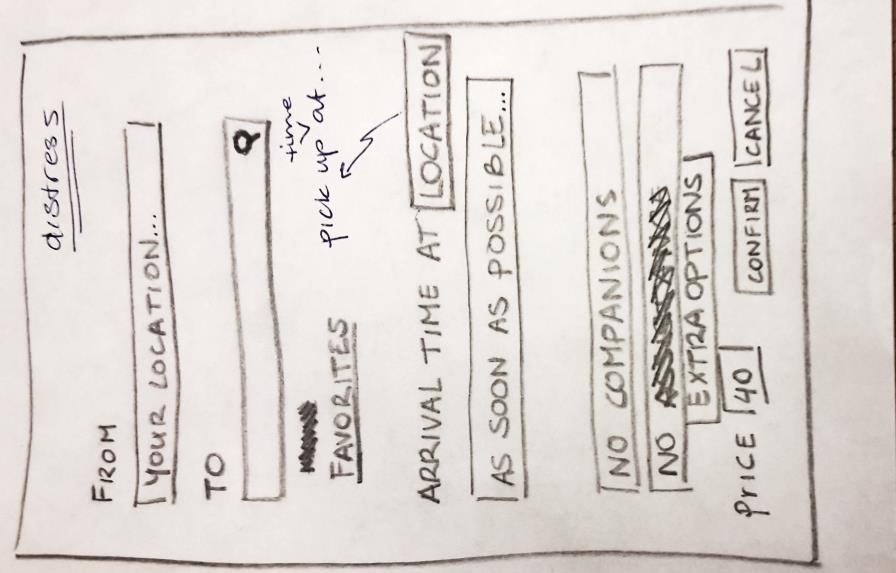 distress
FROM
YOUR LOCATION...
TO
FAVORITES
time
pick up at...
ARRIVAL TIME AT LOCATION
AS SOON AS POSSIBLE...
NO COMPANIONS
NO
EXTRA OPTIONS
PRICE 40 CONFIRM CANCEL